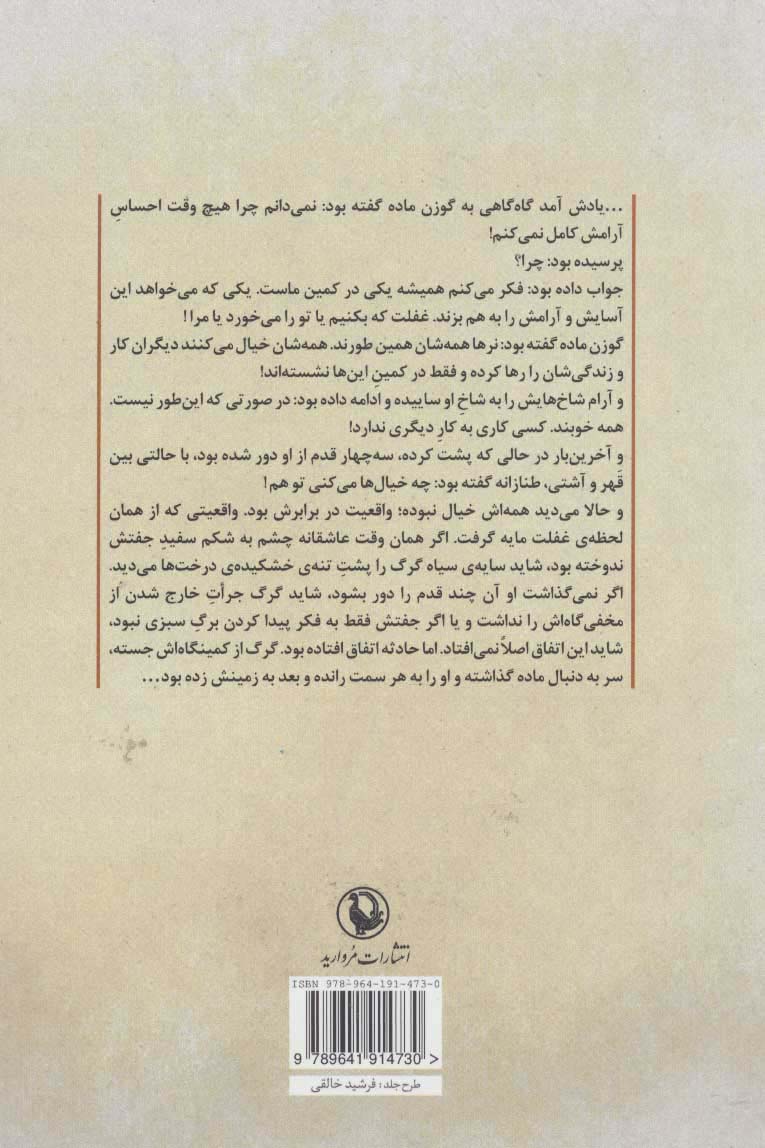 ...یادش آمد گاه‌گاهی به گوزن ماده گفته بود: نمی‌دانم چرا هیچ وقت احساسِ
آرامش کامل نمی‌کنم!
پرسیده بود: چرا؟
جواب داده بود: فکر می‌کنم همیشه یکی در کمین ماست. یکی که می‌خواهد این
آسایش و آرامش را به هم بزند. غفلت که بکنیم یا تو را می‌خورد یا مرا!
گوزن ماده گفته بود: نرها همه‌شان همین طورند. همه‌شان خیال می‌کنند دیگران کار
و زندگی‌شان را رها کرده و فقط در کمینِ این‌ها نشسته‌اند!
و آرام شاخ‌هایش را به شاخِ او ساییده و ادامه داده بود: در صورتی که این‌طور نیست.
همه خوبند. کسی کاری به کارِ دیگری ندارد!
و آخرین‌بار در حالی که پشت کرده، سه‌چهار قدم از او دور شده بود، با حالتی بین
قَهر و آشتی، طنازانه گفته بود: چه خیال‌ها می‌کنی تو هم!
و حالا می‌دید همه‌اش خیال نبوده؛ واقعیت در برابرش بود. واقعیتی که از همان
لحظه‌ی غفلت مایه گرفت. اگر همان وقت عاشقانه چشم به شکم سفیدِ جفتش
ندوخته بود، شاید سایه‌ی سیاه گرگ را پشتِ تنه‌ی خشکیده‌ی درخت‌ها می‌دید.
اگر نمی‌گذاشت او آن چند قدم را دور بشود، شاید گرگ جرأتِ خارج شدن از
مخفی‌گاه‌اش را نداشت و یا اگر جفتش فقط به فکر پیدا کردن برگِ سبزی نبود،
شاید این اتفاق اصلاً نمی‌افتاد. اما حادثه اتفاق افتاده بود. گرگ از کمینگاه‌اش جسته،
سر به دنبال ماده گذاشته و او را به هر سمت رانده و بعد به زمینش زده بود...
انتشارات مُروارید
ISBN 978-964-191-473-0
9 789641 914730 >
طرح جلد: فرشید خالقی